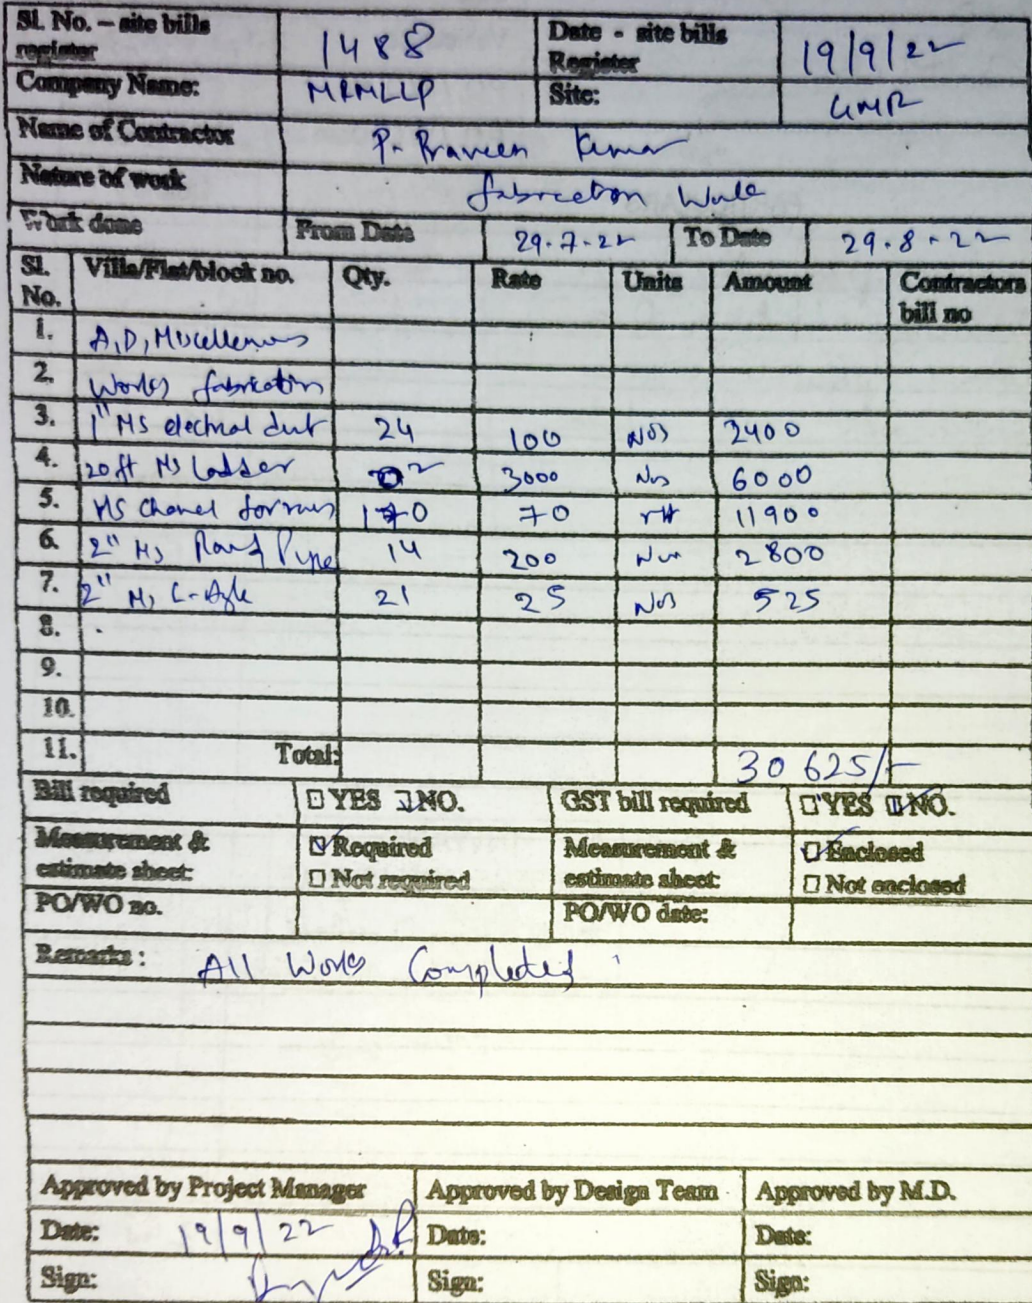 Sl. No. – site bills register 1488 Date - site bills Register 19/9/22
Company Name: MRMLLP Site: GMR
Name of Contractor P. Praveen Kumar
Nature of work fabrication Work
Work done From Date 29.7.22 To Date 29.8.22
Sl. No. Villa/Flat/block no. Qty. Rate Units Amount Contractors bill no
1. A, D, Miscellenous
2. Works fabrication
3. 1" MS electrical 24 100 Nos 2400
4. 20 ft MS Ladder 2 3000 Nos 6000
5. MS Chanel 170 70 rft 11900
6. 2" MS Round Pipe 14 200 Nos 2800
7. 2" MS L-Agle 21 25 Nos 525
8.
9.
10.
11. Total: 30625/-
Bill required YES NO. GST bill required YES NO.
Measurement & estimate sheet: Required Measurement & estimate sheet: Enclosed
Not required Not enclosed
PO/WO no. PO/WO date:
Remarks : All Works Completed
Approved by Project Manager Approved by Design Team Approved by M.D.
Date: 19/9/22 Date: Date:
Sign: Sign: Sign: